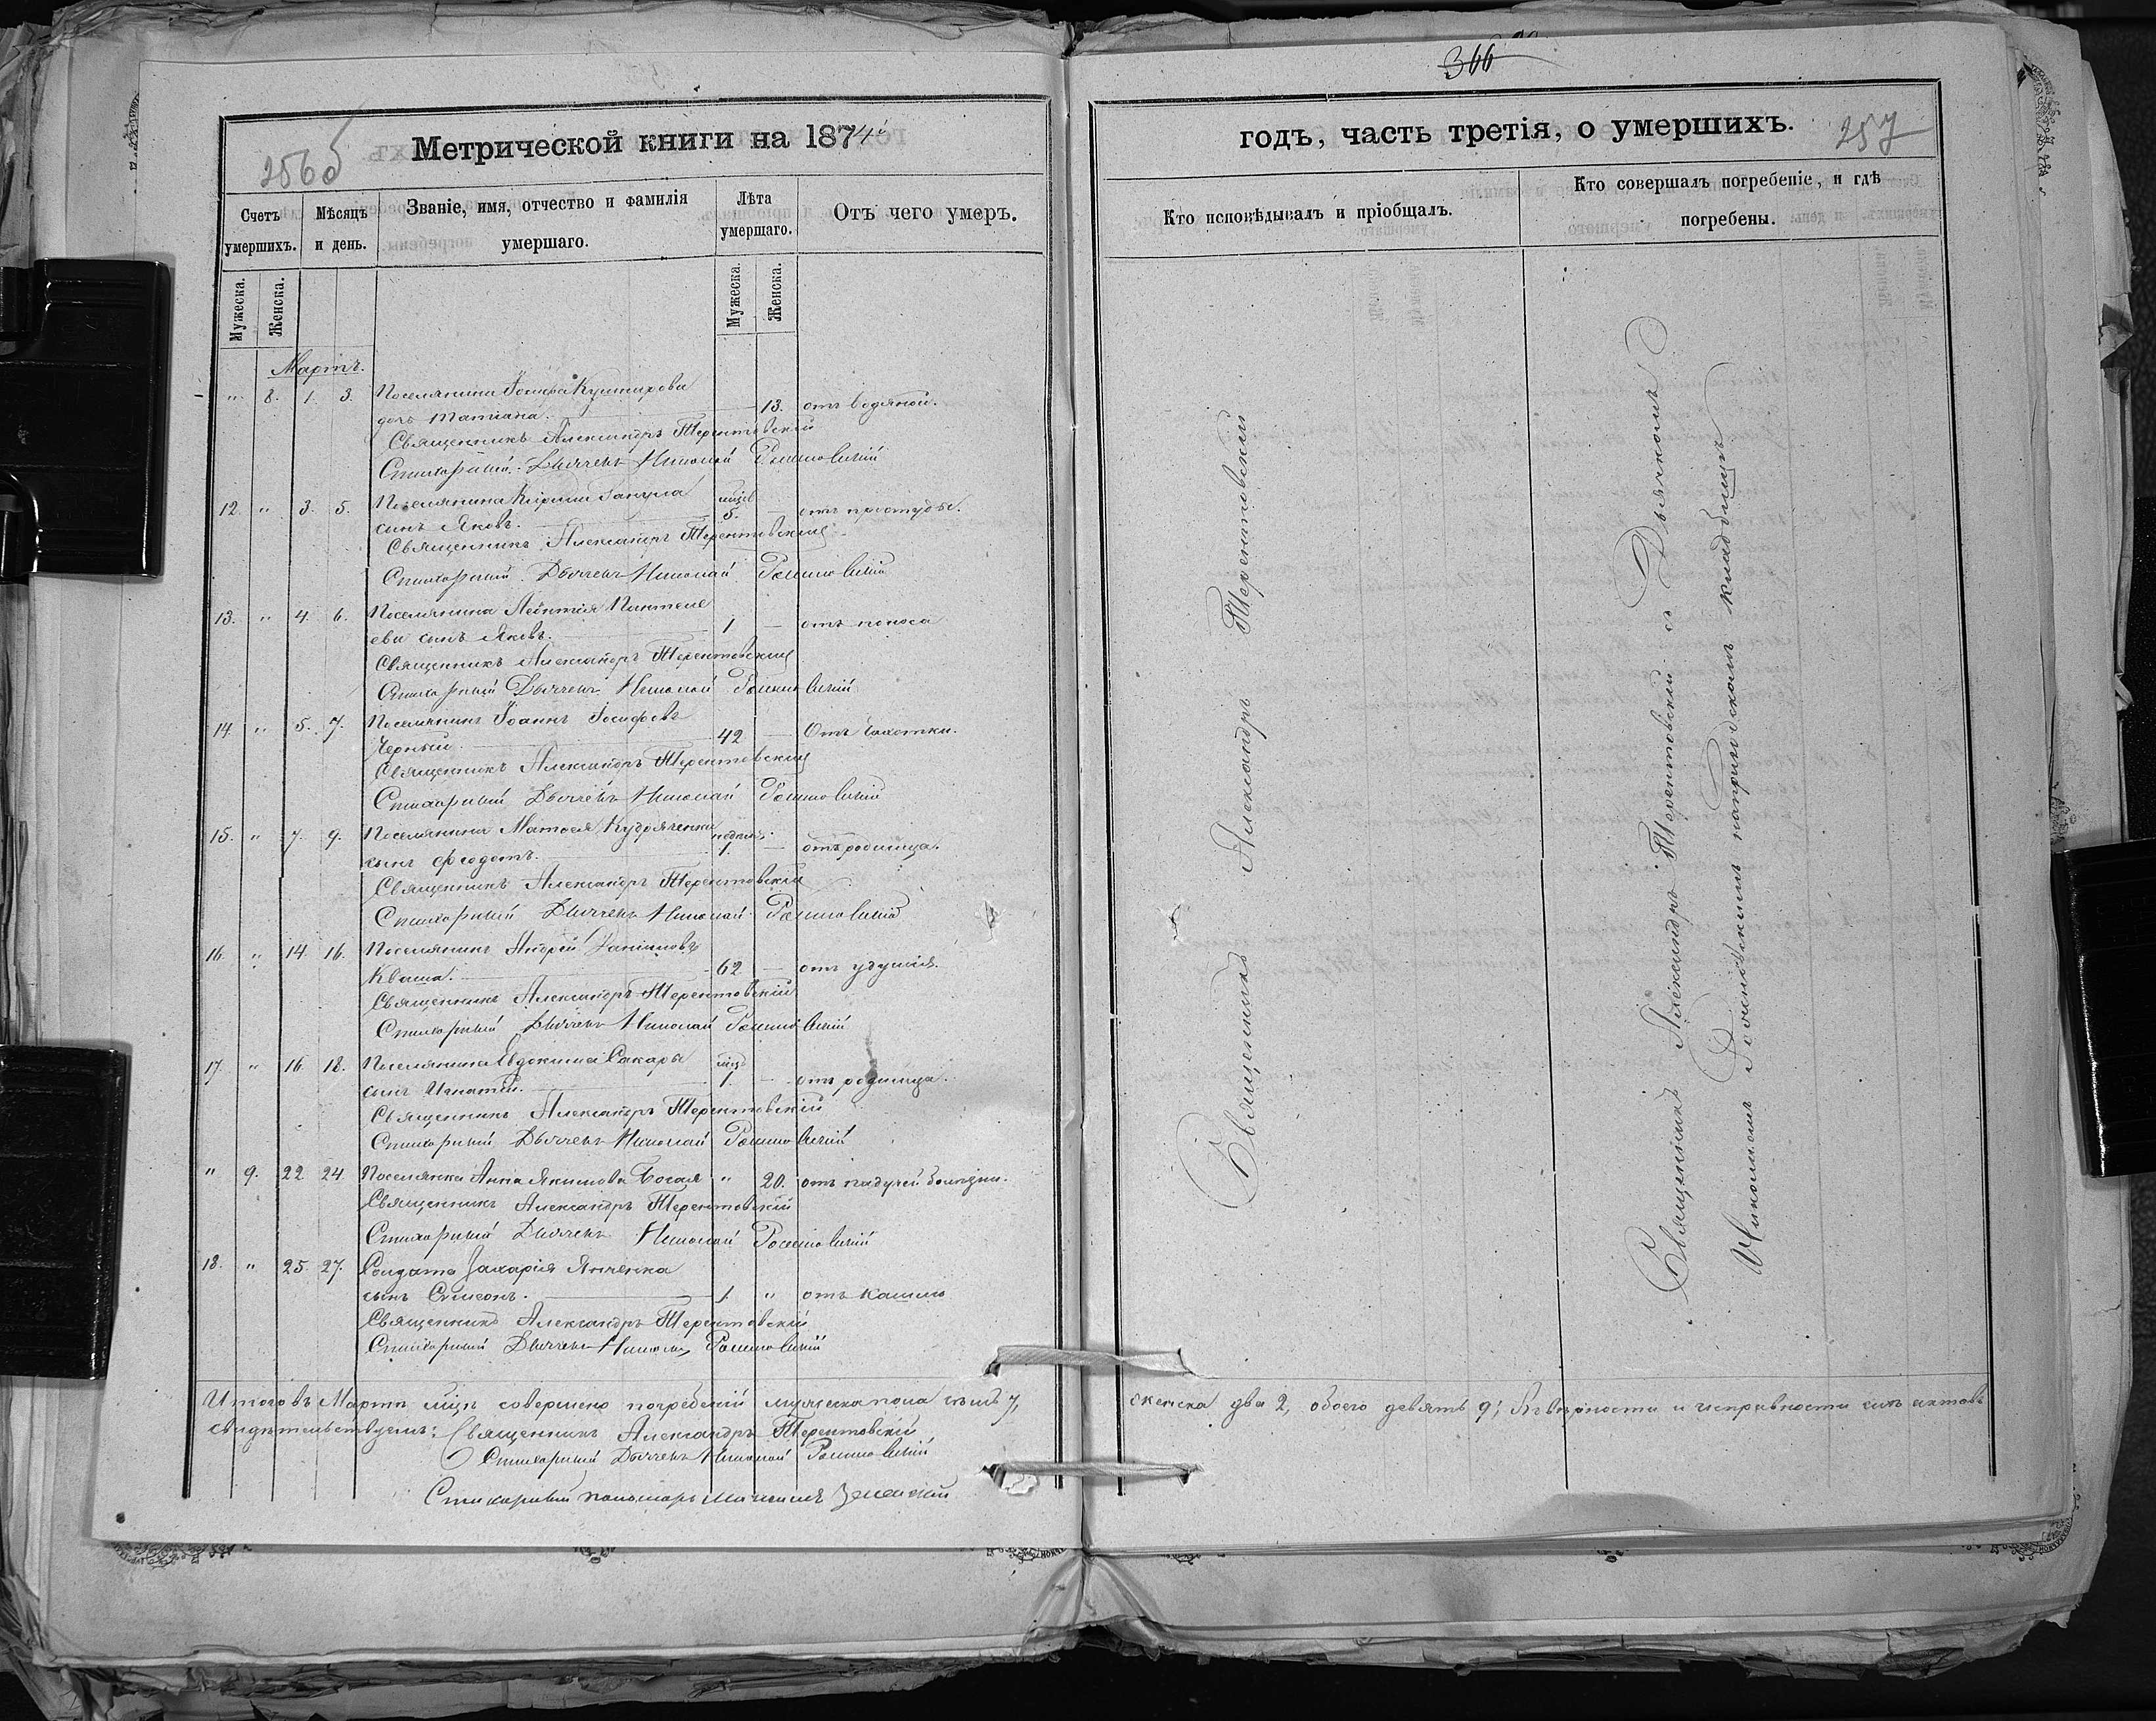 366
256 б
Метрической книги на 1874й
годъ, часть третія, о умершихъ.
257
Счетъ умершихъ.
Мѣсяцъ и день.
Званіе, имя, отчество и фамилія умершаго.
Лѣта умершаго.
Отъ чего умеръ.
Кто исповѣдывалъ и пріобщалъ.
Кто совершалъ погребеніе, и гдѣ погребены.
Мужеска.
Женска.
Мужеска.
Женска.
Мартъ.
" 8. 1. 3. Поселянина Іосифа
дочь Татіана. 13. отъ водяной.
Священникъ Александръ Терентовскій
Стихарный Дьячекъ Николай
12. " 3. 5. Поселянина мцов
сынъ Яковъ. 5. — отъ простуды.
Священникъ Александръ Терентовскій
Стихарный Дьячекъ Николай
13. " 4. 6. Поселянина Леонтія Пантеле
ева сынъ Яковъ. 1 — отъ поноса
Священникъ Александръ Терентовскій
Стихарный Дьячекъ Николай
14. " 5. 7. Поселянинъ Іоаннъ Іосифовъ
Черный. 42 — Отъ чахотки.
Священникъ Александръ Терентовскій
Стихарный Дьячекъ Николай
15. " 7. 9. Поселянина Матѳея Кудряченка недѣль
сынъ Ѳеодотъ. 1. — отъ родимца.
Священникъ Александръ Терентовскій
Стихарный Дьячекъ Николай
16. " 14. 16. Поселянинъ Андрей Даніиловъ
Кваша. 62 — отъ удушія.
Священникъ Александръ Терентовскій
Стихарный Дьячекъ Николай
17. " 16. 18. Поселянина Евдокима Сакары мцъ
сынъ Игнатій. 1. — отъ родимца.
Священникъ Александръ Терентовскій
Стихарный Дьячекъ Николай
" 9. 22 24. Поселянка Анна Якимова Босая " 20. отъ падучей болѣзни.
Священникъ Александръ Терентовскій
Стихарный Дьячекъ Николай
18. " 25. 27. Солдата Захарія Янченка
сынъ Симеонъ. 1. " отъ кашлю
Священникъ Александръ Терентовскій
Стихарный Дьячекъ Николай
Итого въ Мартѣ мцѣ совершено погребеній мужеска пола семь 7,
женска два 2, обоего девять 9; въ вѣрности и исправности сихъ актовъ
свидѣтельствуемъ: Священникъ Александръ Терентовскій
Стихарный Дьячекъ Николай
Стихарный пономарь
Священникъ Александръ Терентовскій
Священникъ Александръ Терентовскій съ Дьячкомъ
Николаемъ на приходскомъ кладбищѣ